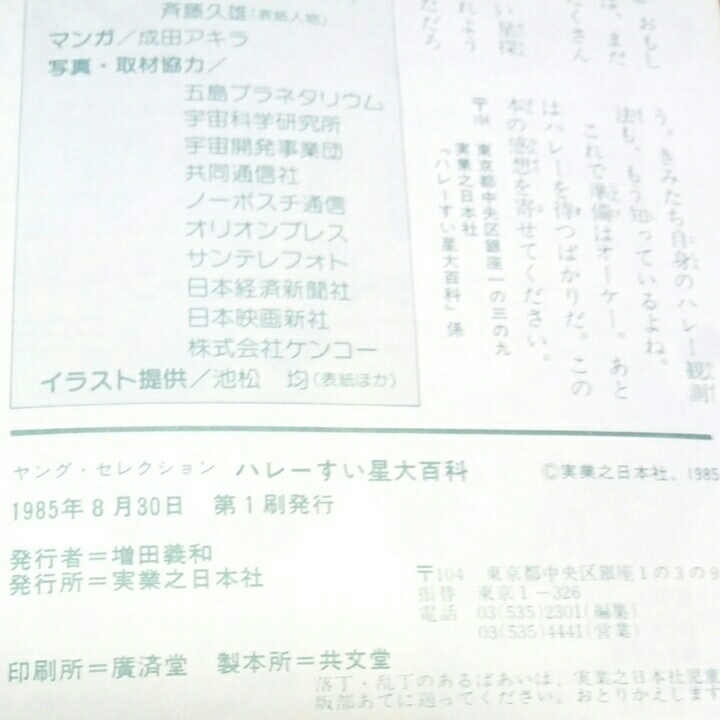 おもし
は、まだ
たくさん
い星探
れよう
ただろ
う。きみたち自身のハレー観測
法も、もう知っているよね。
これで準備はオーケー。あと
はハレーを待つばかりだ。この
本の感想を寄せてください。
〒104 東京都中央区銀座一の三の九
実業之日本社
『ハレーすい星大百科』係
斉藤久雄(表紙人物)
マンガ/成田アキラ
写真・取材協力/
五島プラネタリウム
宇宙科学研究所
宇宙開発事業団
共同通信社
ノーボスチ通信
オリオンプレス
サンテレフォト
日本経済新聞社
日本映画新社
株式会社ケンコー
イラスト提供/池松 均(表紙ほか)
ヤング・セレクション ハレーすい星大百科 ©実業之日本社、1985
1985年8月30日 第1刷発行
発行者=増田義和
発行所=実業之日本社
〒104 東京都中央区銀座1の3の9
振替 東京1-326
電話 03(535)2301(編集)
03(535)4441(営業)
印刷所=廣済堂 製本所=共文堂
落丁・乱丁のあるばあいは、実業之日本社児童
版部あてに送ってください。おとりかえします